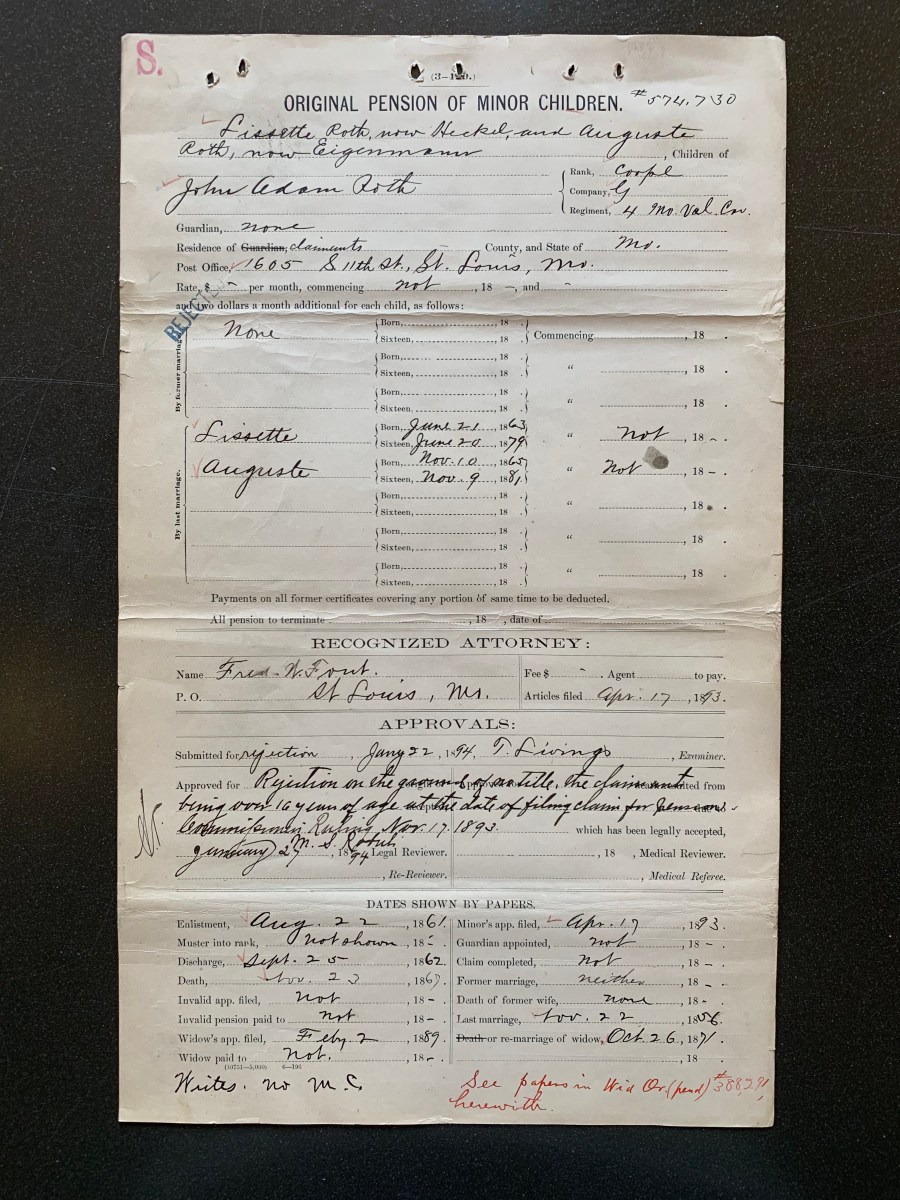 S.
ORIGINAL PENSION OF MINOR CHILDREN. #574,730
Lissette Roth, now Heckel, and Auguste
Roth, now Eigenmann, Children of
John Adam Roth
Rank, Corpl
Company, G
Regiment, 4 Mo. Vol. Cav.
Guardian, none
Residence of Guardian, claimants County, and State of Mo.
Post Office, 1605 S 11th St., St. Louis, Mo.
Rate, $ - per month, commencing not, 18 –, and -
and two dollars a month additional for each child, as follows:
REJECTED
By former marriage.
None Born, , 18 . Commencing , 18 .
Sixteen, , 18 .
Born, , 18 . " , 18 .
Sixteen, , 18 .
Born, , 18 . " , 18 .
Sixteen, , 18 .
By last marriage.
Lissette Born, June 21, 1863, " Not, 18 - .
Sixteen, June 20, 1879,
Auguste Born, Nov. 10, 1865, " Not, 18 – .
Sixteen, Nov. 9, 1881,
Born, , 18 . " , 18 .
Sixteen, , 18 .
Born, , 18 . " , 18 .
Sixteen, , 18 .
Born, , 18 . " , 18 .
Sixteen, , 18 .
Payments on all former certificates covering any portion of same time to be deducted.
All pension to terminate , 18 , date of
RECOGNIZED ATTORNEY:
Name Fred. W. Fout. Fee $ - . Agent to pay.
P. O. St Louis, Mo. Articles filed Apr. 17, 1893.
APPROVALS:
Submitted for rejection, Jany 22, 1894, T. Livings, Examiner.
Approved for Rejection on the ground of no title, the claimants
being over 16 years of age at the date of filing claim for pension.
Commissioner's Ruling Nov. 17. 1893. which has been legally accepted,
January 27, 1894 M. S. Legal Reviewer. , 18 , Medical Reviewer.
, Re-Reviewer. , Medical Referee.
DATES SHOWN BY PAPERS.
Enlistment, Aug. 22, 1861. Minor's app. filed, Apr. 17, 1893.
Muster into rank, not shown, 18 - . Guardian appointed, not, 18 – .
Discharge, Sept. 25, 1862. Claim completed, Not, 18 – .
Death, Nov. 23, 186 . Former marriage, neither, 18 - .
Invalid app. filed, Not, 18 – . Death of former wife, none, 18 - .
Invalid pension paid to not, 18 – . Last marriage, Nov. 22, 1856.
Widow's app. filed, Feby. 2, 1889. Death or re-marriage of widow, Oct. 26, 1871.
Widow paid to Not., 18 - . , 18 .
(10751—5,000) 6—196
Writes. no M.C.
See papers in Wid Or. (pend) #388,291,
herewith.